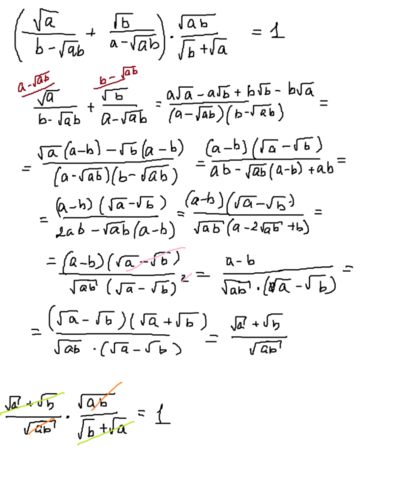 (√a/(b-√ab) + √b/(a-√ab)) · √ab/(√b+√a) = 1
a-√ab b-√ab
√a/(b-√ab) + √b/(a-√ab) = (a√a-a√b+b√b-b√a)/((a-√ab)(b-√ab)) =
= (√a(a-b)-√b(a-b))/((a-√ab)(b-√ab)) = (a-b)(√a-√b)/(ab-√ab(a-b)+ab) =
= (a-b)(√a-√b)/(2ab-√ab(a-b)) = (a-b)(√a-√b)/(√ab(a-2√ab+b)) =
= (a-b)(√a-√b)/(√ab(√a-√b)²) = (a-b)/(√ab·(√a-√b)) =
= (√a-√b)(√a+√b)/(√ab·(√a-√b)) = (√a+√b)/√ab
(√a+√b)/√ab · √ab/(√b+√a) = 1